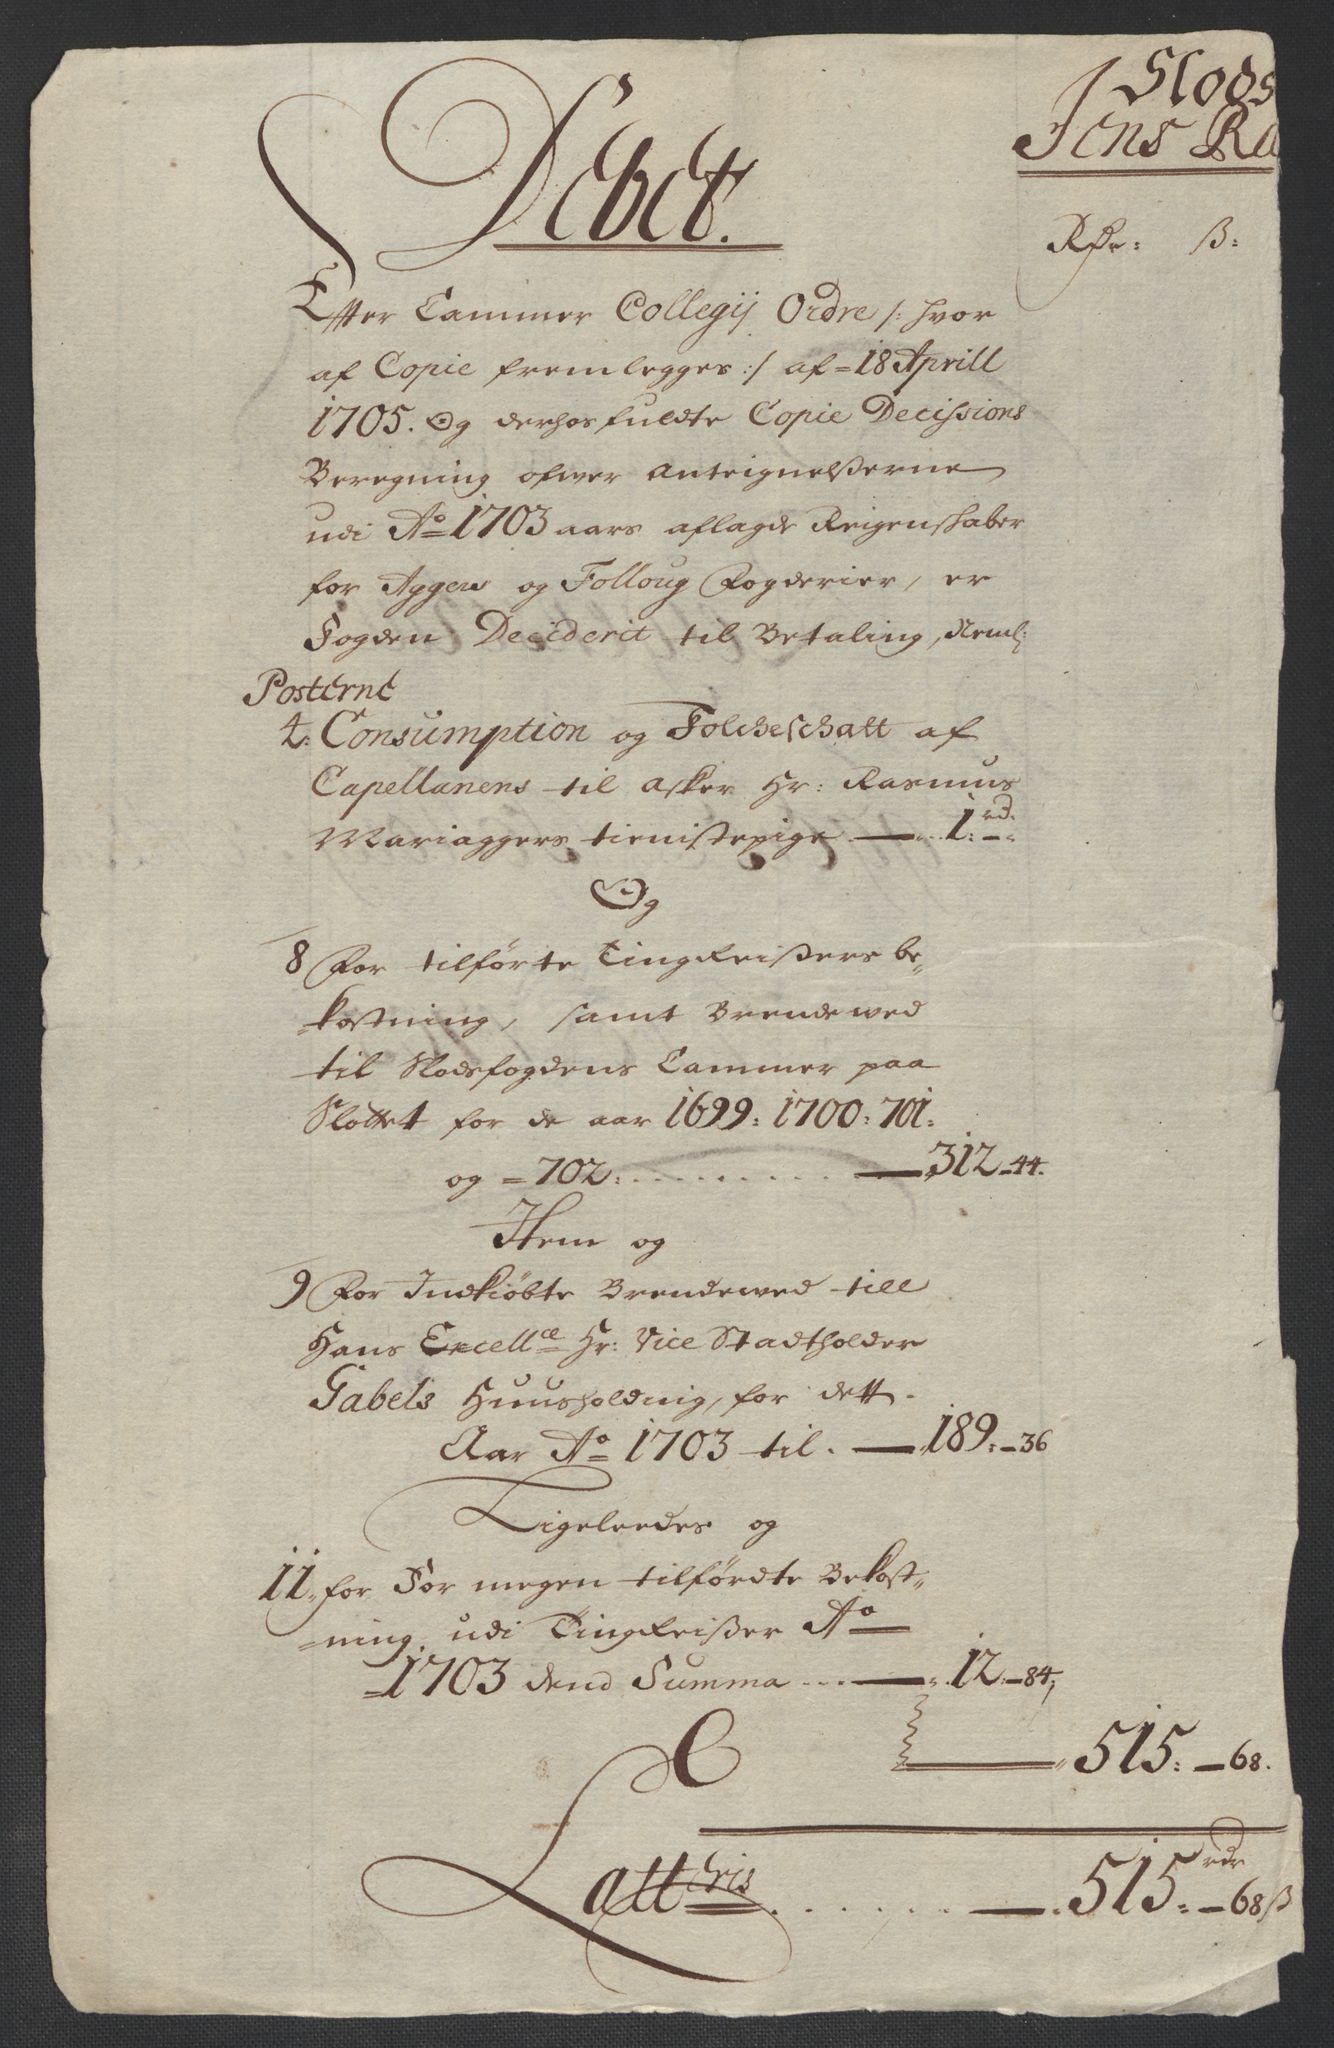 Slods
Jens Ra
Debet.
Rdr: ß:
Effter Cammer Collegij Ordre /: hvor
af Copie fremlegges :/ af = 18 Aprill
1705. Og derhos fuldte Copie Decissions
Beregning ofwer Anteignelßerne
udi Ao 1703 aars aflagde Reigenskaber
for Aggers og Folloug Fogderier, er
Fogden Deciderit til Betaling, Neml:
Posterne
4: Consumption og Folcheschatt af
Capellanens til Asker Hr: Rasmus
Mariaggers tienistepige — 1 rd: –
Og
8 For tilførte Tingreißers be„
„kostning, samt Brendewed
til Slodsfogdens Cammer paa
Slottet for de aar 1699: 1700: 701:
og = 702: . . . . . . . . . — 312 – 44.
Item og
9 For Indkiøbte Brendewed till
Hans Excellce Hr: Vice Stadtholder
Gabels Huusholdnig, for dett.
Aar Ao 1703 til. — 189: – 36
Ligeleedes og
11. for For megen tilførdte Bekost„
„ning udi Tingreißer Ao
= 1703 dend Summa . . . — 12: – 84;
515: – 68.
Latteris . . . . . . — 515 rdr: – 68 ß